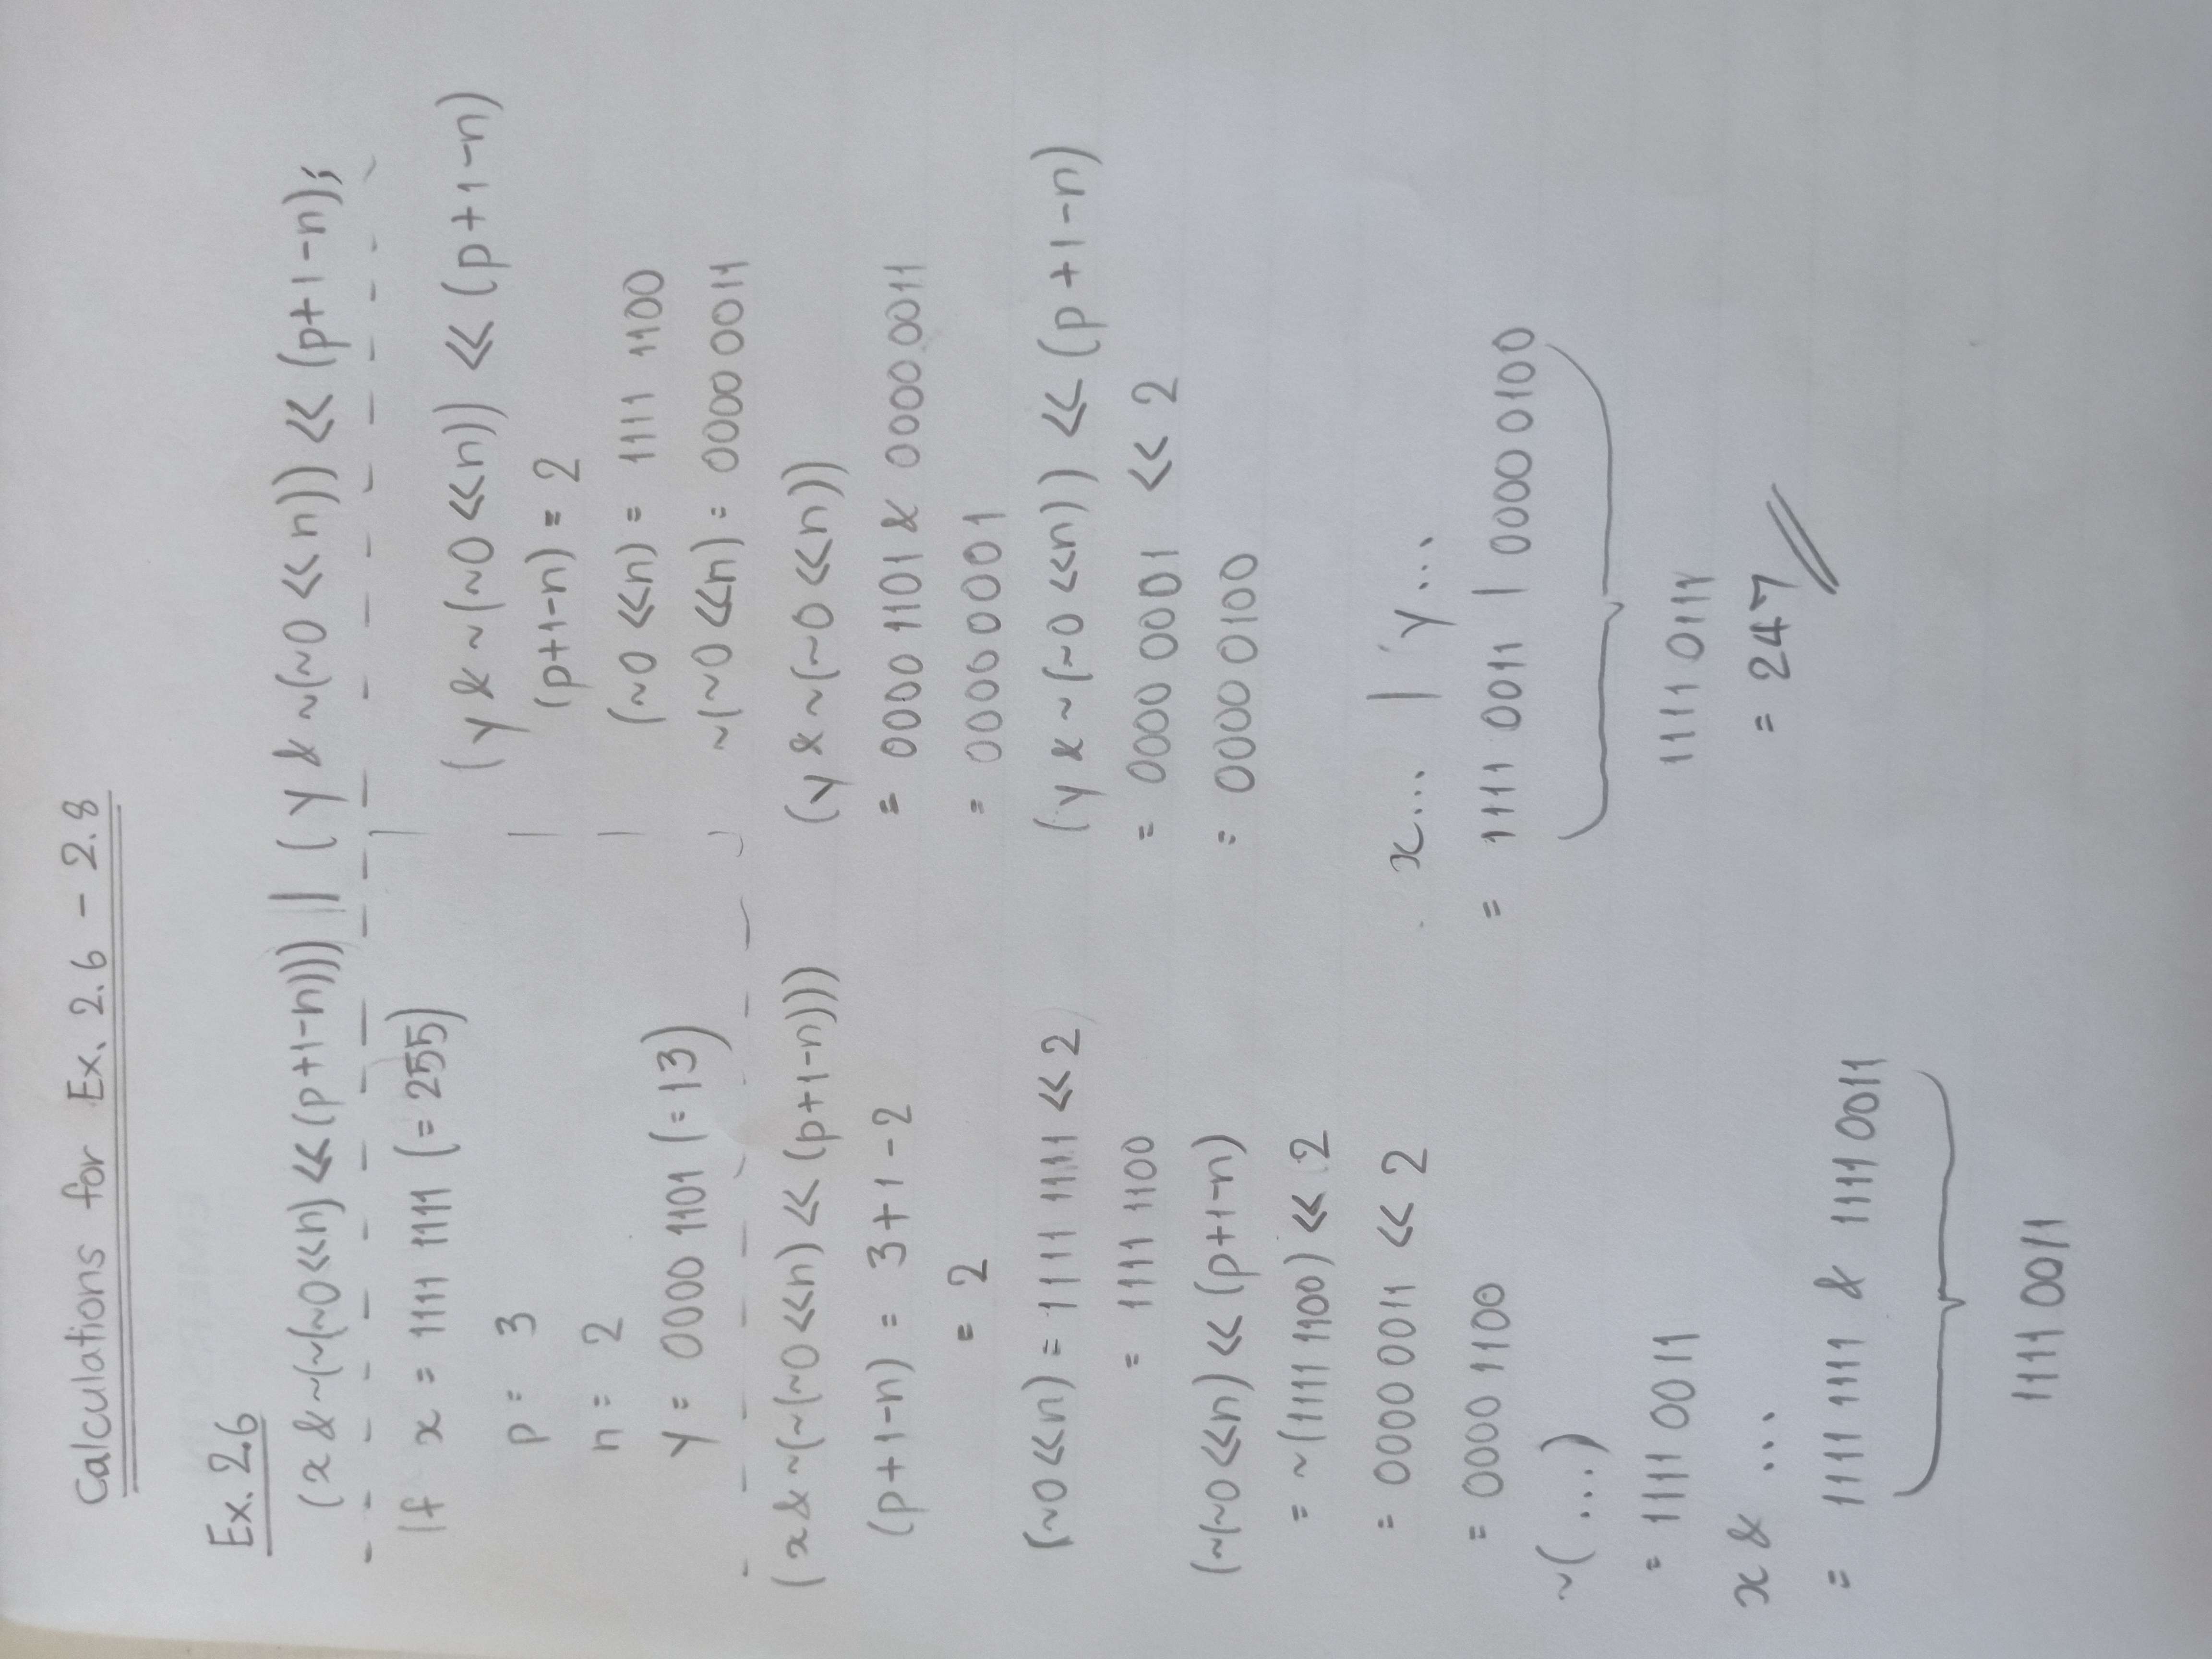 Calculations for Ex. 2.6 - 2.8
Ex. 2.6
(x & ~(~(~0 << n) << (p+1-n))) | (y & ~(~0 << n)) << (p+1-n);
If x = 1111 1111 (= 255)
p = 3
n = 2
y = 0000 1101 (= 13)
(x & ~(~(~0 << n) << (p+1-n)))
(p+1-n) = 3+1-2
= 2
(~0 << n) = 1111 1111 << 2
= 1111 1100
(~(~0 << n) << (p+1-n)
= ~(1111 1100) << 2
= 0000 0011 << 2
= 0000 1100
~(...)
= 1111 0011
x & ...
= 1111 1111 & 1111 0011
1111 0011
(y & ~(~0 << n)) << (p+1-n)
(p+1-n) = 2
(~0 << n) = 1111 1100
~(~0 << n) = 0000 0011
(y & ~(~0 << n))
= 0000 1101 & 0000 0011
= 0000 0001
(y & ~(~0 << n)) << (p+1-n)
= 0000 0001 << 2
= 0000 0100
x... | y...
= 1111 0011 | 0000 0100
1111 0111
= 247